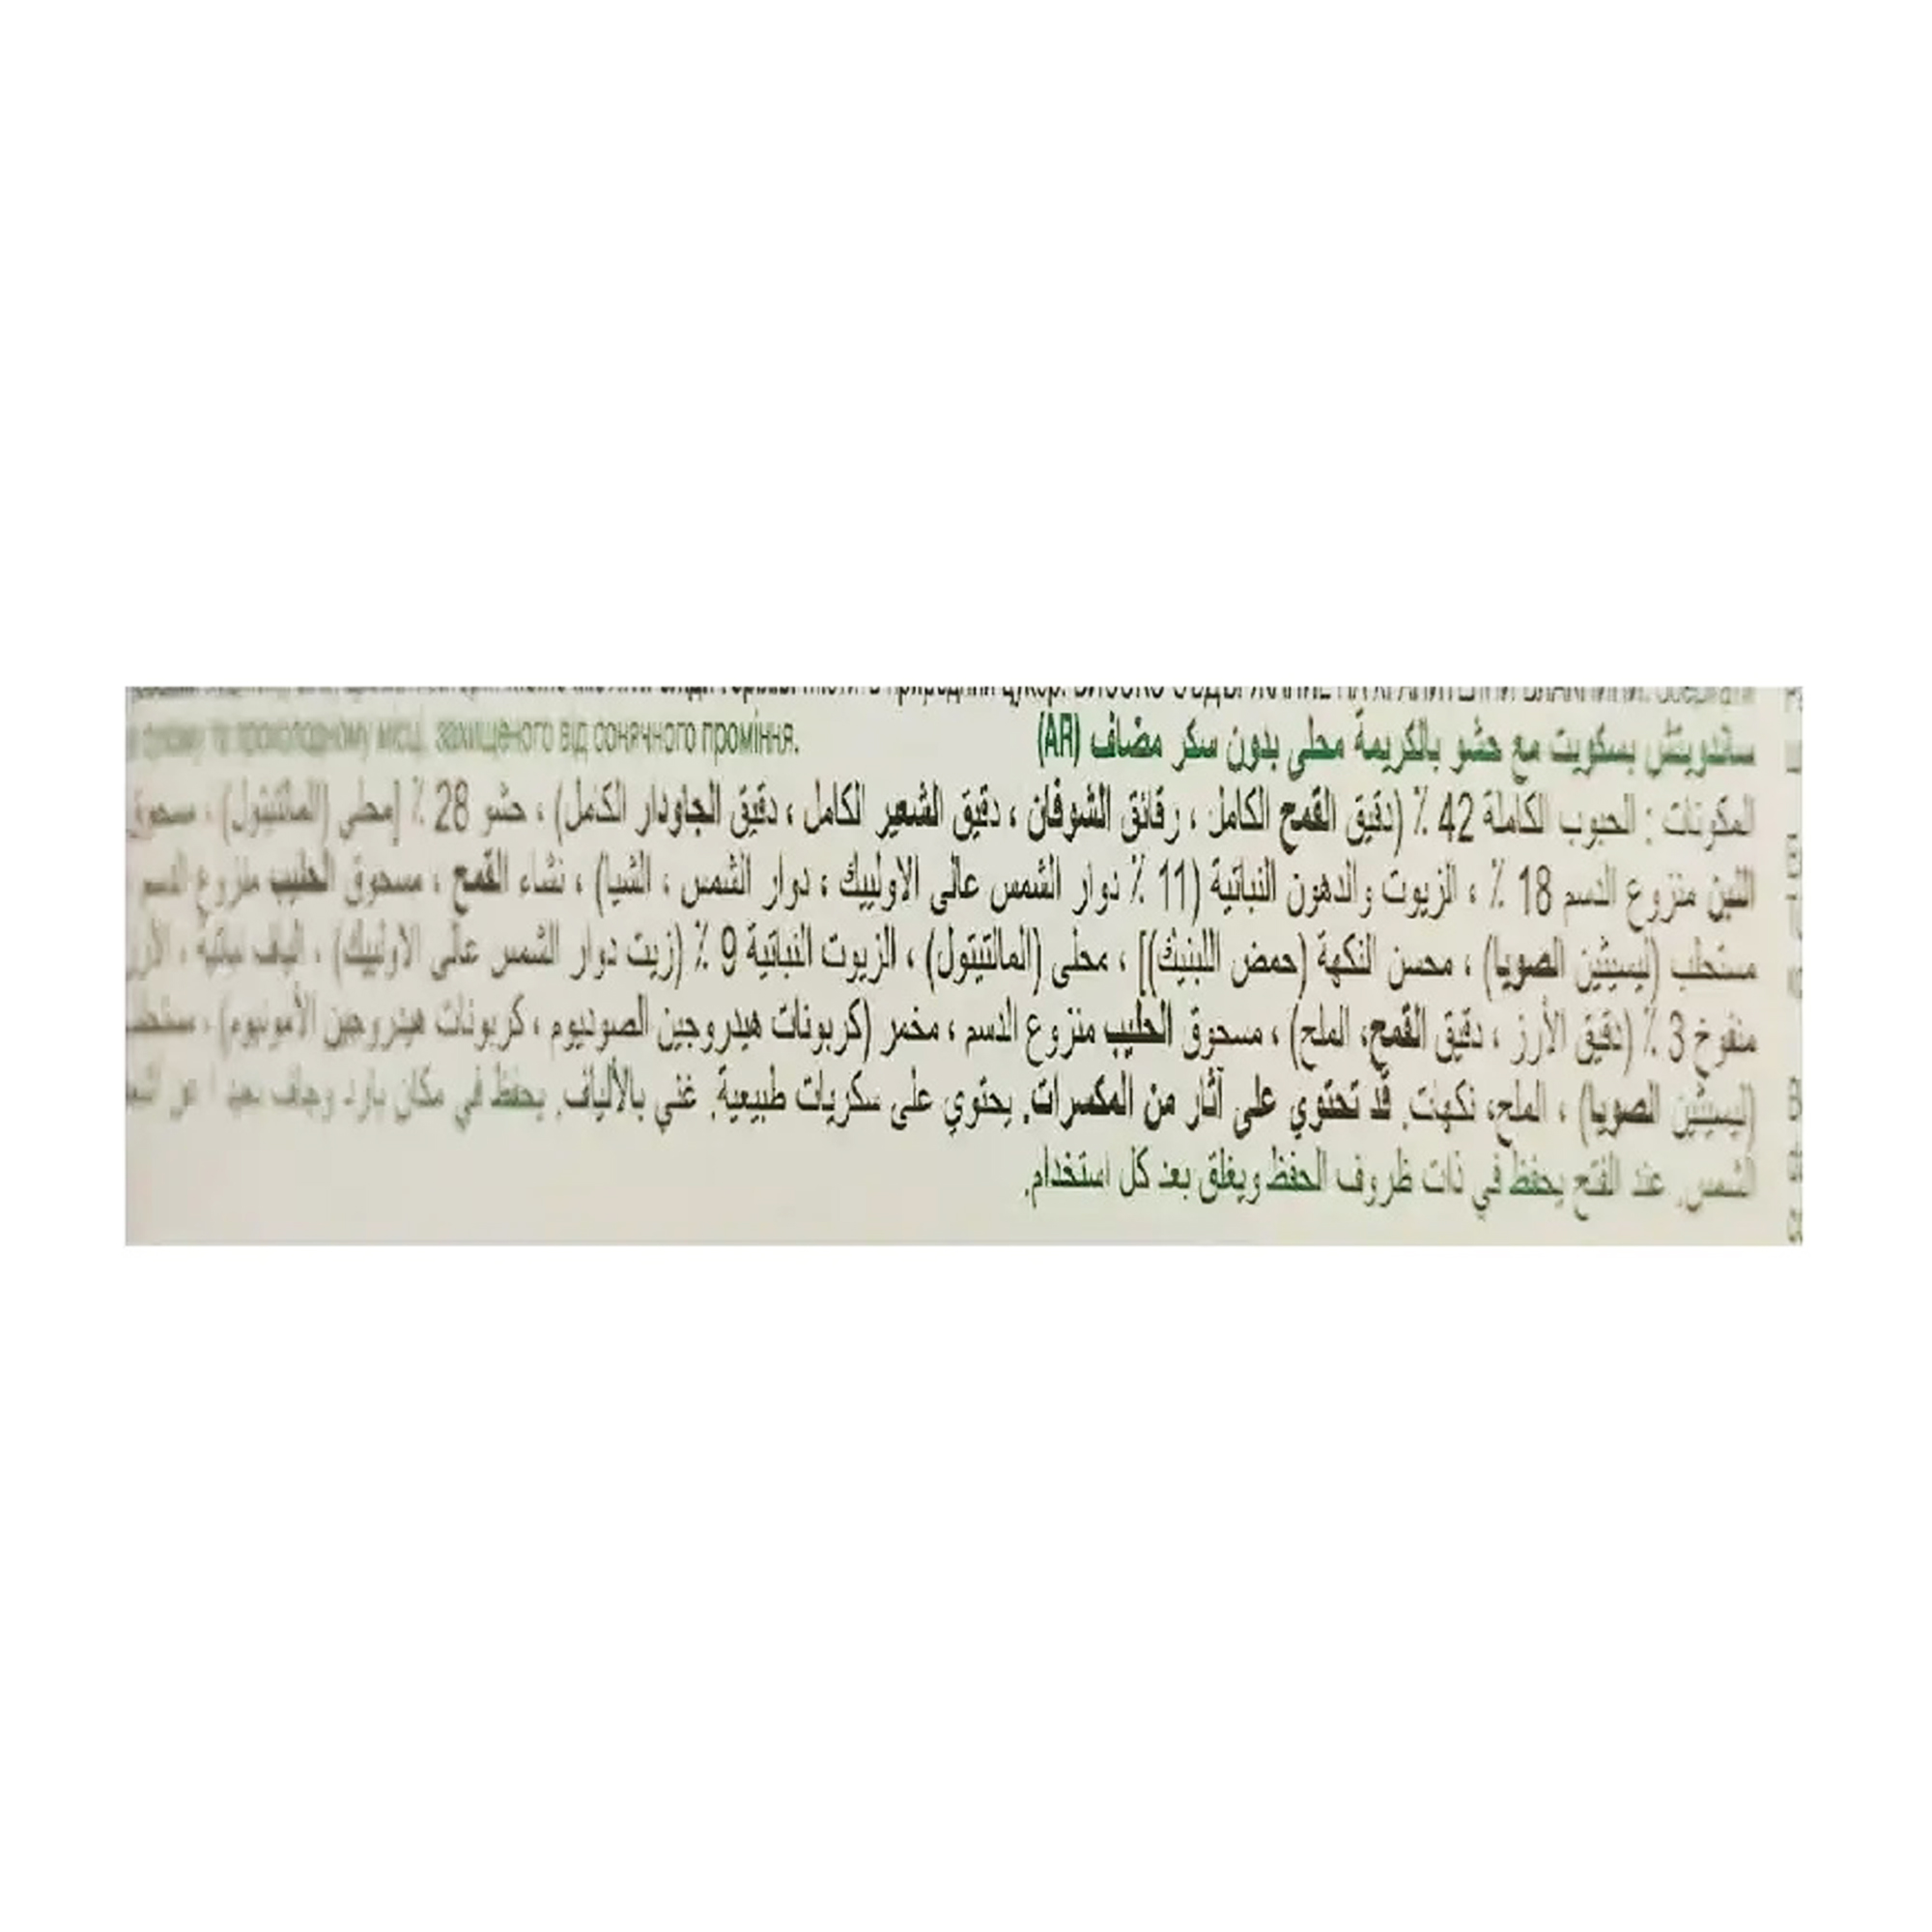 захищеного від сонячного проміння.
ساندويتش بسكويت مع حشو بالكريمة محلى بدون سكر مضاف (AR)
المكونات : الحبوب الكاملة 42 ٪ (دقيق القمح الكامل ، رقائق الشوفان ، دقيق الشعير الكامل ، دقيق الجاودار الكامل) ، حشو 28 ٪ [محلى (المالتيتول) ، مسحوق
اللبن منزوع الدسم 18 ٪ ، الزيوت والدهون النباتية (11 ٪ دوار الشمس عالى الاولييك ، دوار الشمس ، الشيا) ، نشاء القمح ، مسحوق الحليب منزوع الدسم
مستحلب (ليسيثين الصويا) ، محسن النكهة (حمض اللبنيك)] ، محلى (المالتيتول) ، الزيوت النباتية 9 ٪ (زيت دوار الشمس عالى الاولييك) ، الياف نباتية ، الأرز
منفوخ 3 ٪ (دقيق الأرز ، دقيق القمح، الملح) ، مسحوق الحليب منزوع الدسم ، مخمر (كربونات هيدروجين الصوديوم ، كربونات هيدروجين الأمونيوم) ،
(ليسيثين الصويا) ، الملح، نكهات. قد تحتوي على آثار من المكسرات. يحتوي على سكريات طبيعية. غني بالألياف. يحفظ في مكان بارد وجاف
الشمس. عند الفتح يحفظ في ذات ظروف الحفظ ويغلق بعد كل استخدام.